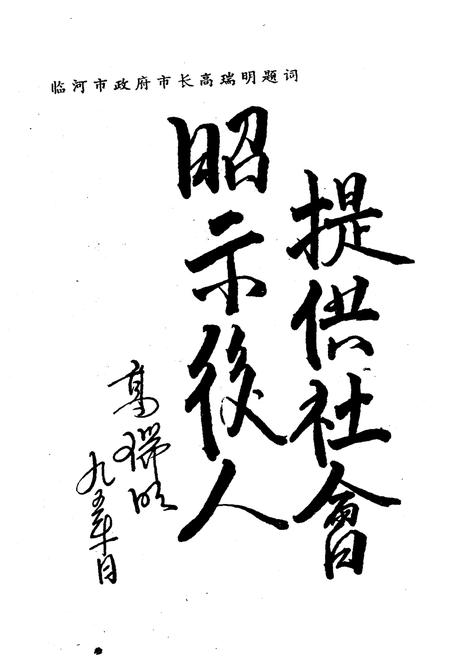 临河市政府市长高瑞明题词
提供社會
昭示後人
高瑞明
九五年 月